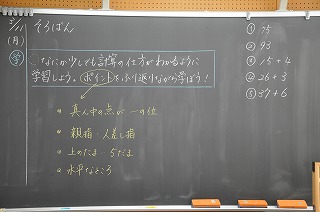 3/11
(月)
そろばん
学
なにか少しでも計算の仕方がわかるように
学習しよう。ポイントをふり返りながら学ぼう!
真ん中の点が一の位
親指・人差し指
上のたま…5だま
水平なところ
① 75
② 93
③ 15+4
④ 26+3
⑤ 37+6